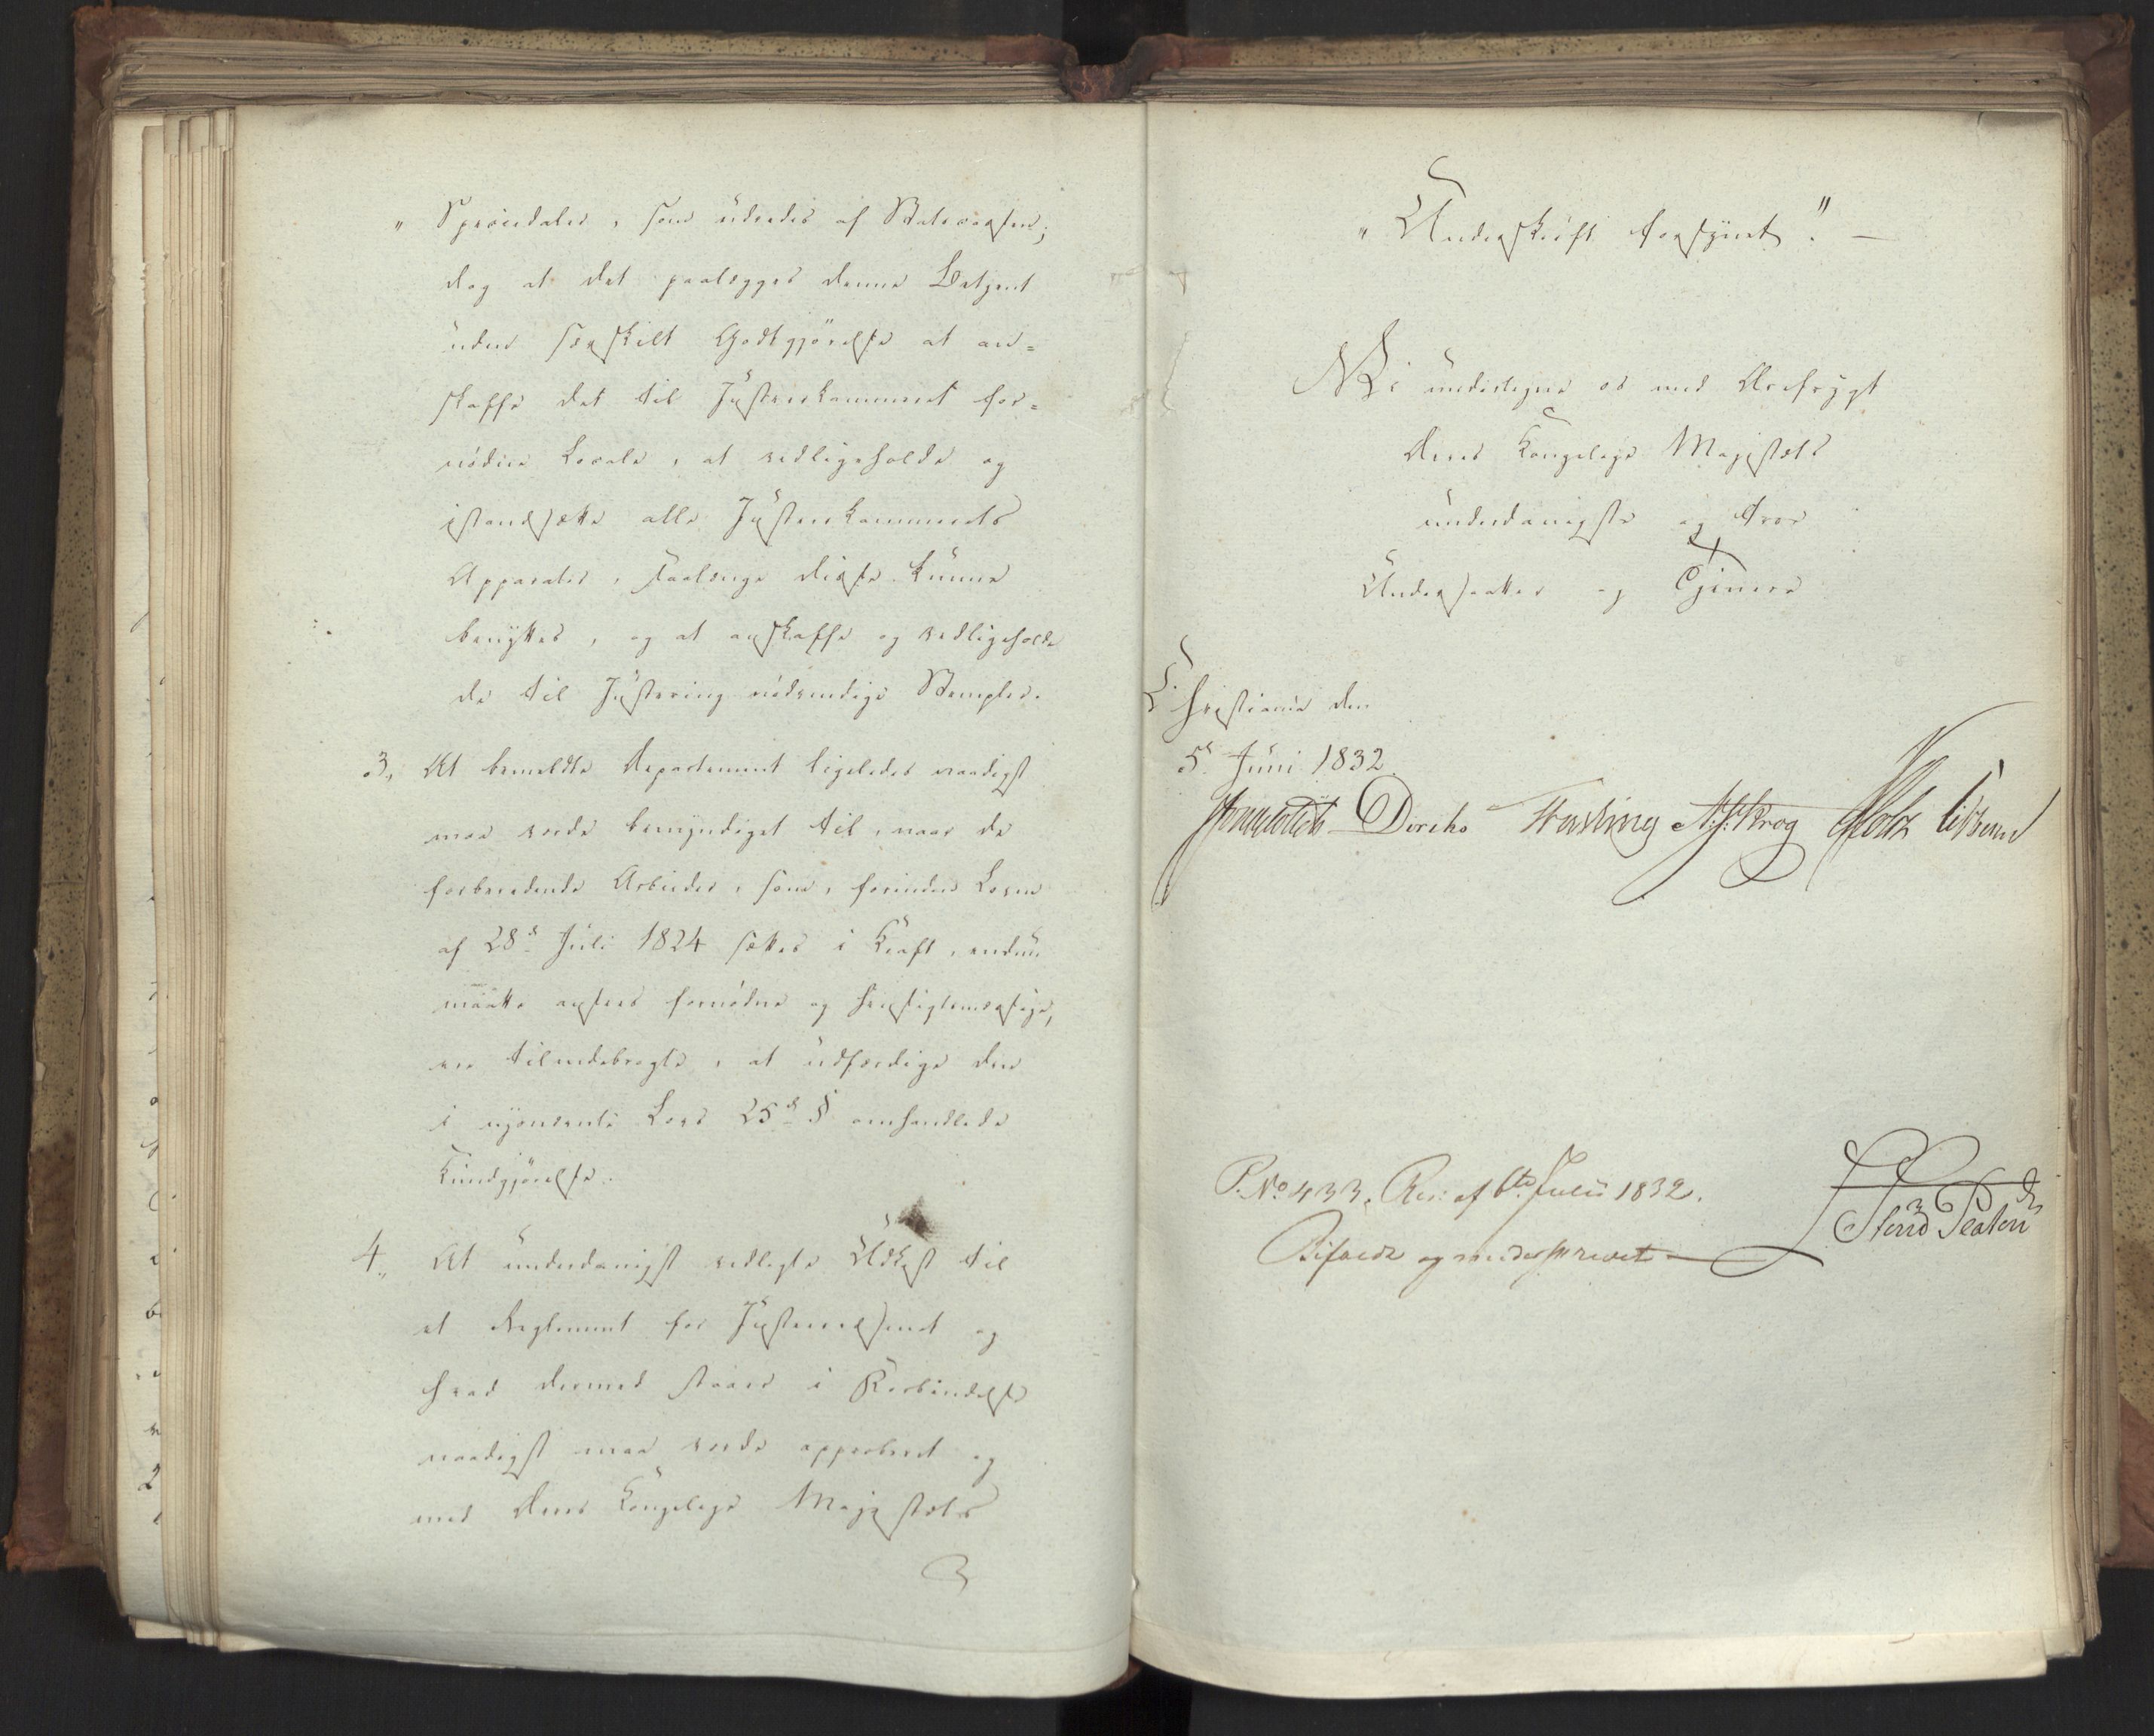 " Speciedaler, som udredes af Statscassen;
dog at det paalægges denne Betjent
uden særskilt Godtgjörelse at an=
skaffe det til Justeerkammeret for=
nödne Locale, at vedligeholde og
istandsætte alle Justeerkammerets
Apparater, saalænge disse kunne
benyttes, og at anskaffe og vedligeholde
de til Justering nödvendige Stempler.
3, At bemeldte Departement ligeledes naadigst
maa vorde bemyndiget til, naar de
forberedende Arbeider, som, forinden Loven
af 28de Juli 1824 sættes i Kraft, endnu
maatte ansees fornödne og hensigtsmæssige,
ere tilendebragte, at udfærdige den
i nysnævnte Lovs 25de § omhandlede
Kundgjörelse.
4, At underdanigst vedlagte Udkast til
et Reglement for Justeervæsenet og
hvad dermed staaer i Forbindelse
naadigst maa vorde approberet og
med Deres Kongelige Majestæts
" Underskrift forsynet." —
Vi undertegne os med Ærefrygt
Deres Kongelige Majestæts
underdanigste og troe
Undersaatter og Tjenere
Christiania den
5te Juni 1832
Diriks Fasting Krog Holst
P. No 433. Res: af 6te Julii 1832.
Bifaldt og underskrevet